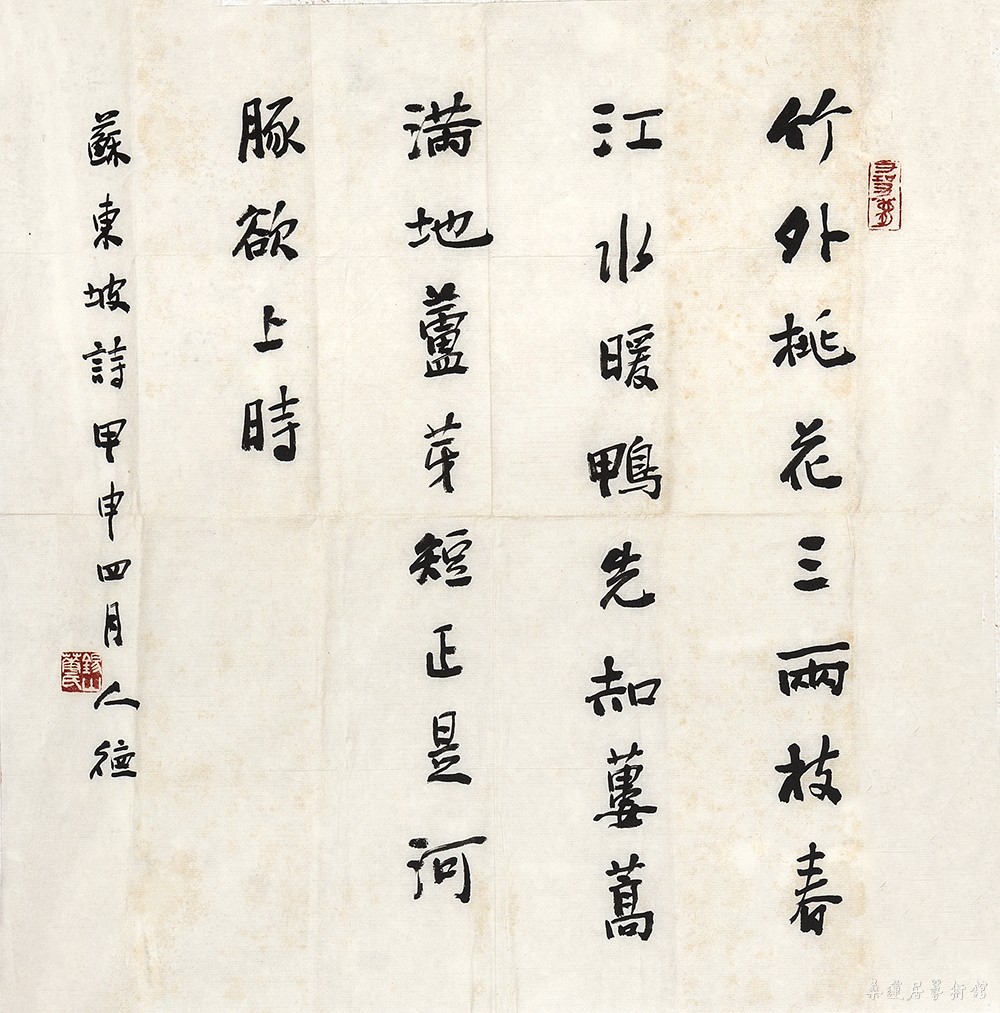 竹外桃花三兩枝春
江水暖鴨先知蔞蒿
滿地蘆芽短正是河
豚欲上時
蘇東坡詩甲申四月人德
錫山華氏